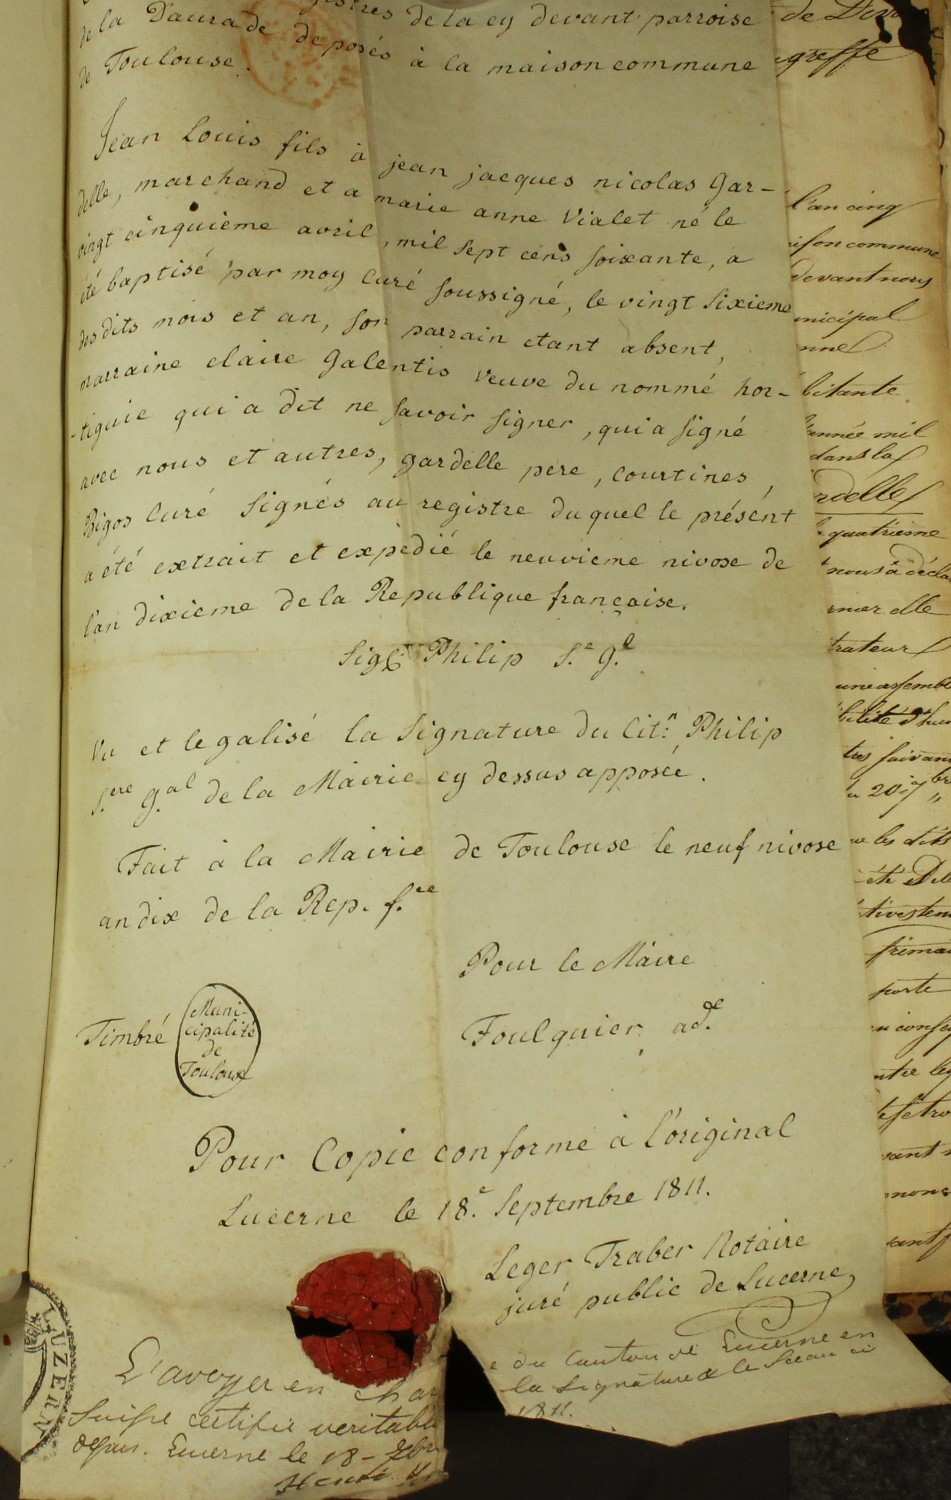 registres de la cy devant parroise
de la Daurade deposés à la maison commune
de Toulouse.
Jean Louis fils à jean jacques nicolas Gar-
delle, marchand et a marie anne Vialet né le
vingt cinquieme avril, mil sept cens soixante, a
été baptisé par moy curé soussigné, le vingt sixieme
des dits mois et an, son parrain etant absent,
marraine claire Galentis veuve du nommé hor-
-tiguie qui a dit ne savoir signer, qui a signé
avec nous et autres, gardelle pere, courtines,
Bigos curé Signés au registre duquel le présent
a été extrait et expédié le neuvieme nivose de
l'an dixieme de la Republique française.
Sigé Philip S.e G.l
Vu et legalisé la Signature du Cit.n Philip
S.re g.al de la Mairie cy dessus apposée.
Fait à la Mairie de Toulouse le neuf nivose
an dix de la Rep. f.se
Pour le Maire
Foulquier ad.
Timbré
Muni-
cipalité
de
Toulouse
Pour Copie conforme à l'original
Lucerne le 18.e Septembre 1811.
Leger Traber Notaire
juré public de Lucerne
LUZERN
L'avoyer en char
e du Canton de Lucerne en
Suisse certifie veritable
la signature & le Sceau ci
dessus. Lucerne le 18 - 7bre
1811.
Henri
greffe
l'an cinq
maison commune
devant nous
municipal
bitante
l'année mil
dans la
rdelle
quatrieme
nous a décla
elle
trateur
une assemb
suivan
porte